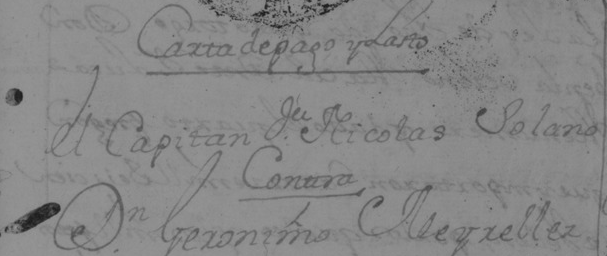 Carta de pago y Lasto
el Capitan Jn Nicolas Solano
Contra
Dn Geronimo Meyrelles